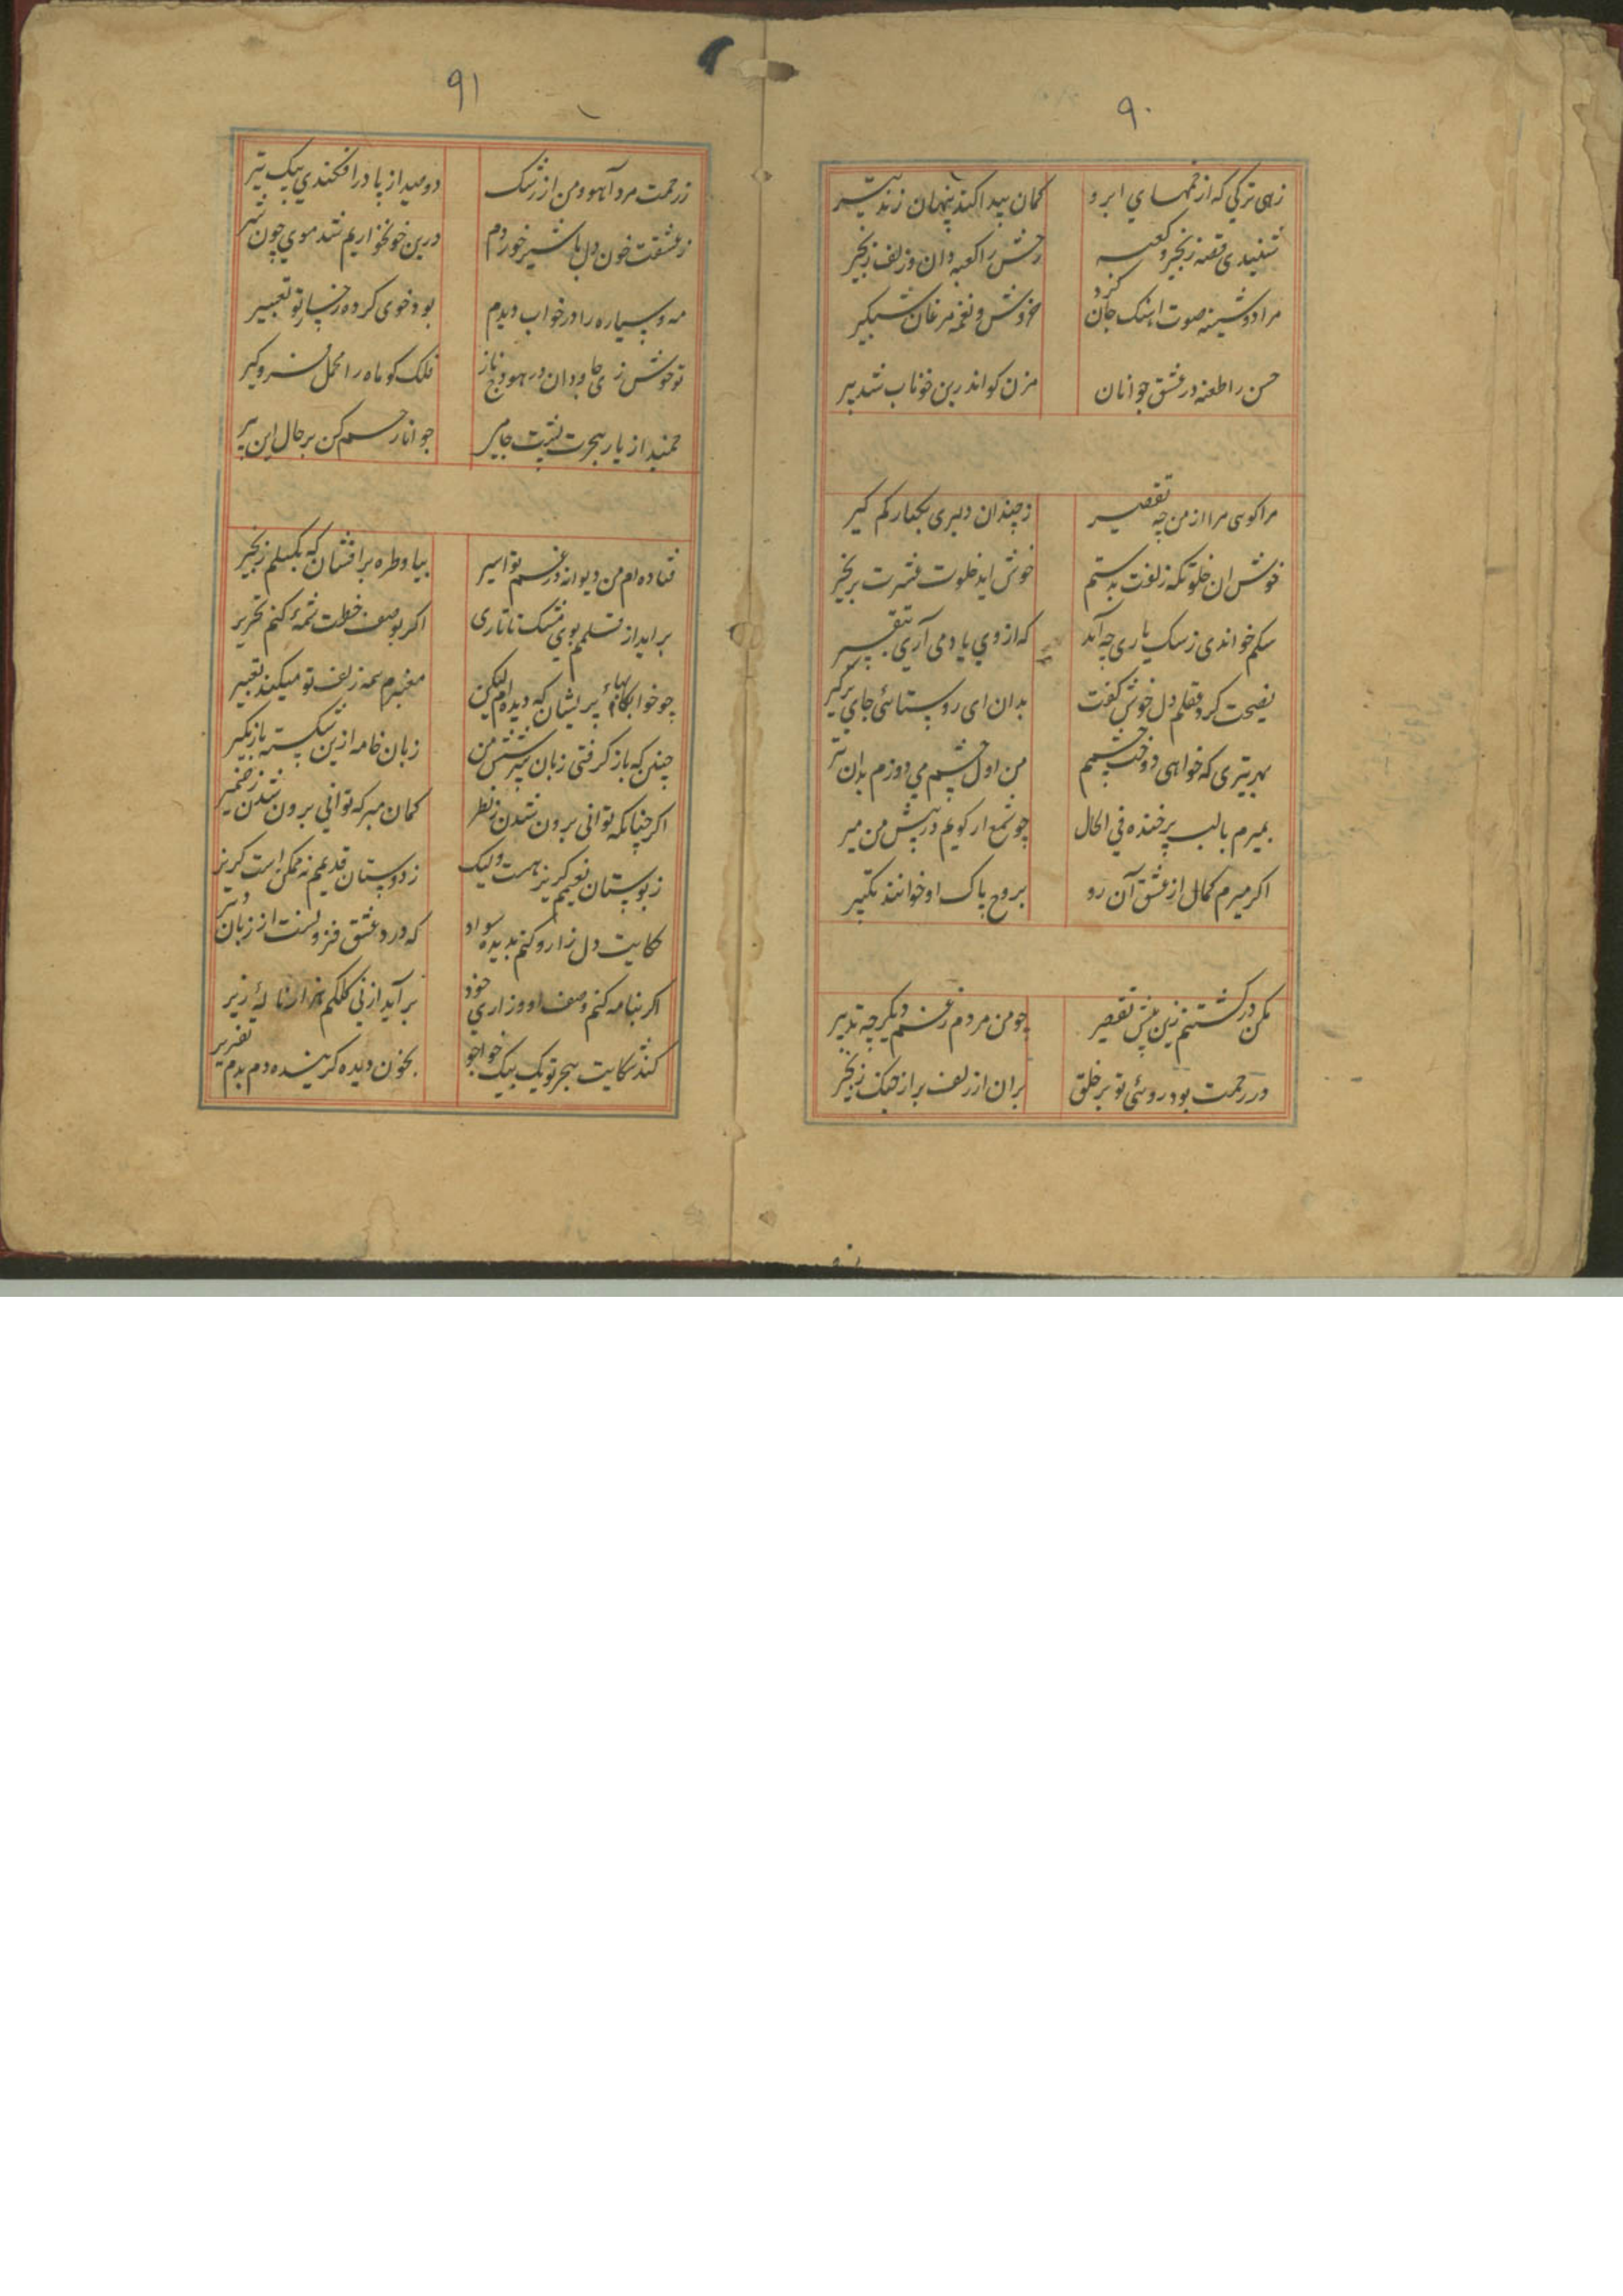 ۹۰
زهی ترکی که از خمهای ابرو کمان پیدا کند پنهان زند تیر
شنیدی قصه زنجیر و کعبه رخش را کعبه دان و زلف زنجیر
مرا دوشینه صوت اهنک جان کرد خروش و نغمه مرغان شبکیر
حسن را طعنه در عشق جوانان مزن کو اندرین خوناب شد پیر
مرا کوی مرا از من چه تقصیر ز چندان دلبری یکبار کم کیر
خوش ان خلوتکه زلفت بدستم خوش اید خلوت عشرت بزنجیر
سکم خواندی ز سک یاری چه آید که از وی یاد می آری بتقصیر
نصیحت کرد عقلم دل خوش کفت بدان ای روستائی جای بر کیر
بهر تیری که خواهی دوخت چشمم من اول چشم می دوزم بدان تیر
بمیرم با لب پر خنده فی الحال چو شمع ار کویم در پیش من میر
اکر میرم کمال از عشق آن رو بروح پاک او خوانند تکبیر
مکن در کشتنم زین بیش تقصیر چو من مردم ز غم دیکر چه تدبیر
در رحمت بود روئی تو بر خلق بران از زلف
۹۱
ز رحمت مرد آهو و من از رشک دو صید از پا در افکندی بیک تیر
ز عشقت خون دل با شیر خوردم درین خونخواریم شد موی چون شیر
مه و سیاره را در خواب دیدم بود خوی کرده رخسار تو تعبیر
تو خوش زی جاودان در هودج ناز فلک کو ماه را محمل فرو کیر
جوانا رحم کن بر حال این پیر
فتاده ام من دیوانه در غم تو اسیر بیا و طره بر افشان که بکسلم زنجیر
بر اید از قلمم بوی مشک تاتاری اکر بوصف خطت شمه کنم تحریر
چو خوابهاء پریشان که دیده ام لیکن معبرم همه زلف تو میکند تعبیر
زبان خامه ازین شکسته باز مکیر
اکر چنانکه توانی برون شدن ز نظر کمان مبر که توانی برون شدن ز ضمیر
ز بوستان نعیم کریز هست ولیک ز دوستان قدیمم نه ممکن است کریز
حکایت دل زار و کنم بدیده سواد که درد عشق فزونست از زبان دبیر
اکر بنامه کنم وصف او و زاری خود بر آید از نی کلکم هزار نالهٔ زیر
کند شکایت هجر تو یک بیک خواجو بخون دیده کرینده دم بدم تقریر